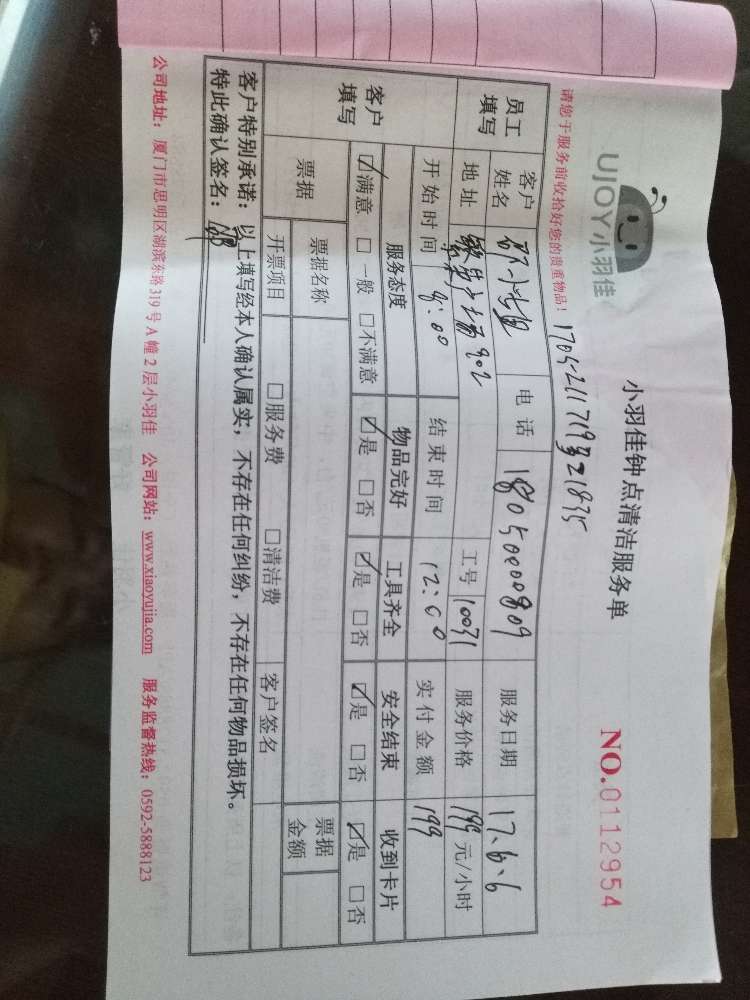 UJOY小羽佳
小羽佳钟点清洁服务单
NO.0112954
请您于服务前收拾好您的贵重物品!
员工填写 客户姓名 电话 18050000809 服务日期 17.6.6
地址 902 工号 10031 服务价格 199 元/小时
开始时间 8:00 结束时间 12:00 实付金额 199
客户填写 服务态度 物品完好 工具齐全 安全结束 收到卡片
☑满意 □一般 □不满意 ☑是 □否 ☑是 □否 ☑是 □否 ☑是 □否
票据 票据名称 票据金额
开票项目 □服务费 □清洁费 客户签名
客户特别承诺:以上填写经本人确认属实,不存在任何纠纷,不存在任何物品损坏。
特此确认签名:
公司地址:厦门市思明区湖滨东路319号A幢2层小羽佳 公司网站:www.xiaoyujia.com 服务监督热线:0592-5888123